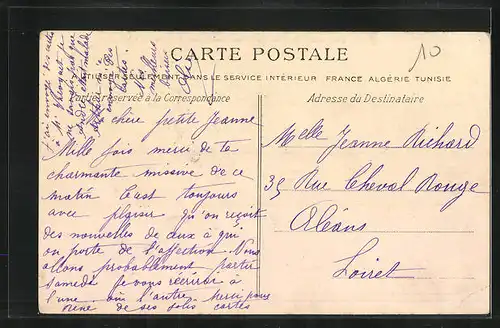 CARTE POSTALE
10
UTILISER SEULEMENT DANS LE SERVICE INTÉRIEUR FRANCE ALGÉRIE TUNISIE
Partie réservée à la Correspondance
Adresse du Destinataire
J'ai envoyé des cartes
à
chère petite Jeanne
Mille fois merci de ta
charmante missive de ce
matin C'est toujours
avec plaisir qu'on reçoit
des nouvelles de ceux à qui
on porte de l'affection. Nous
allons probablement partir
samedi je vous écrirai à
l'une où l'autre merci
de ses jolis cartes
Melle Jeanne Richard
35 Rue Cheval Rouge
Oléans
Loiret